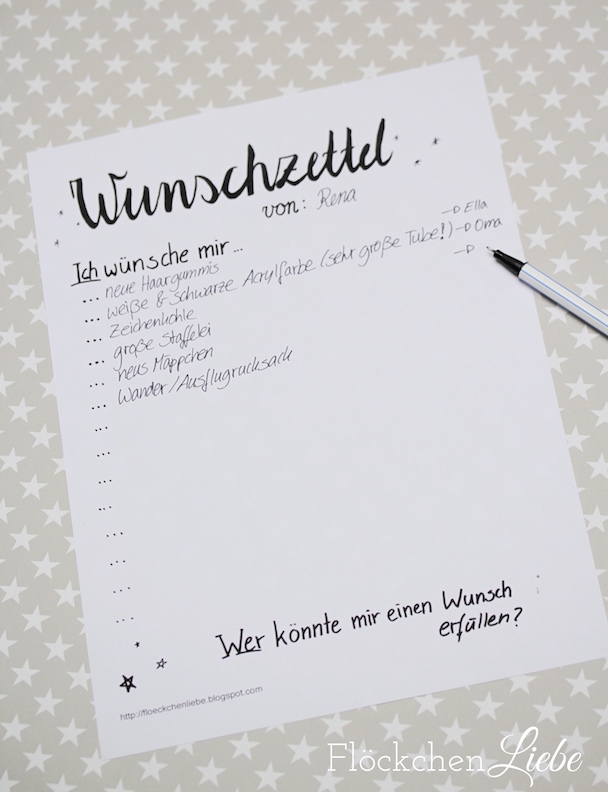 Wunschzettel
von: Rena
Ich wünsche mir...
... neue Haargummis → Ella
... weiße & schwarze Acrylfarbe (sehr große Tube!) → Oma
... Zeichenkohle →
... große Staffelei
... neus Mäppchen
... Wander/Ausflugrucksack
...
...
...
...
...
...
...
Wer könnte mir einen Wunsch
erfüllen?
http://floeckchenliebe.blogspot.com
Flöckchen Liebe